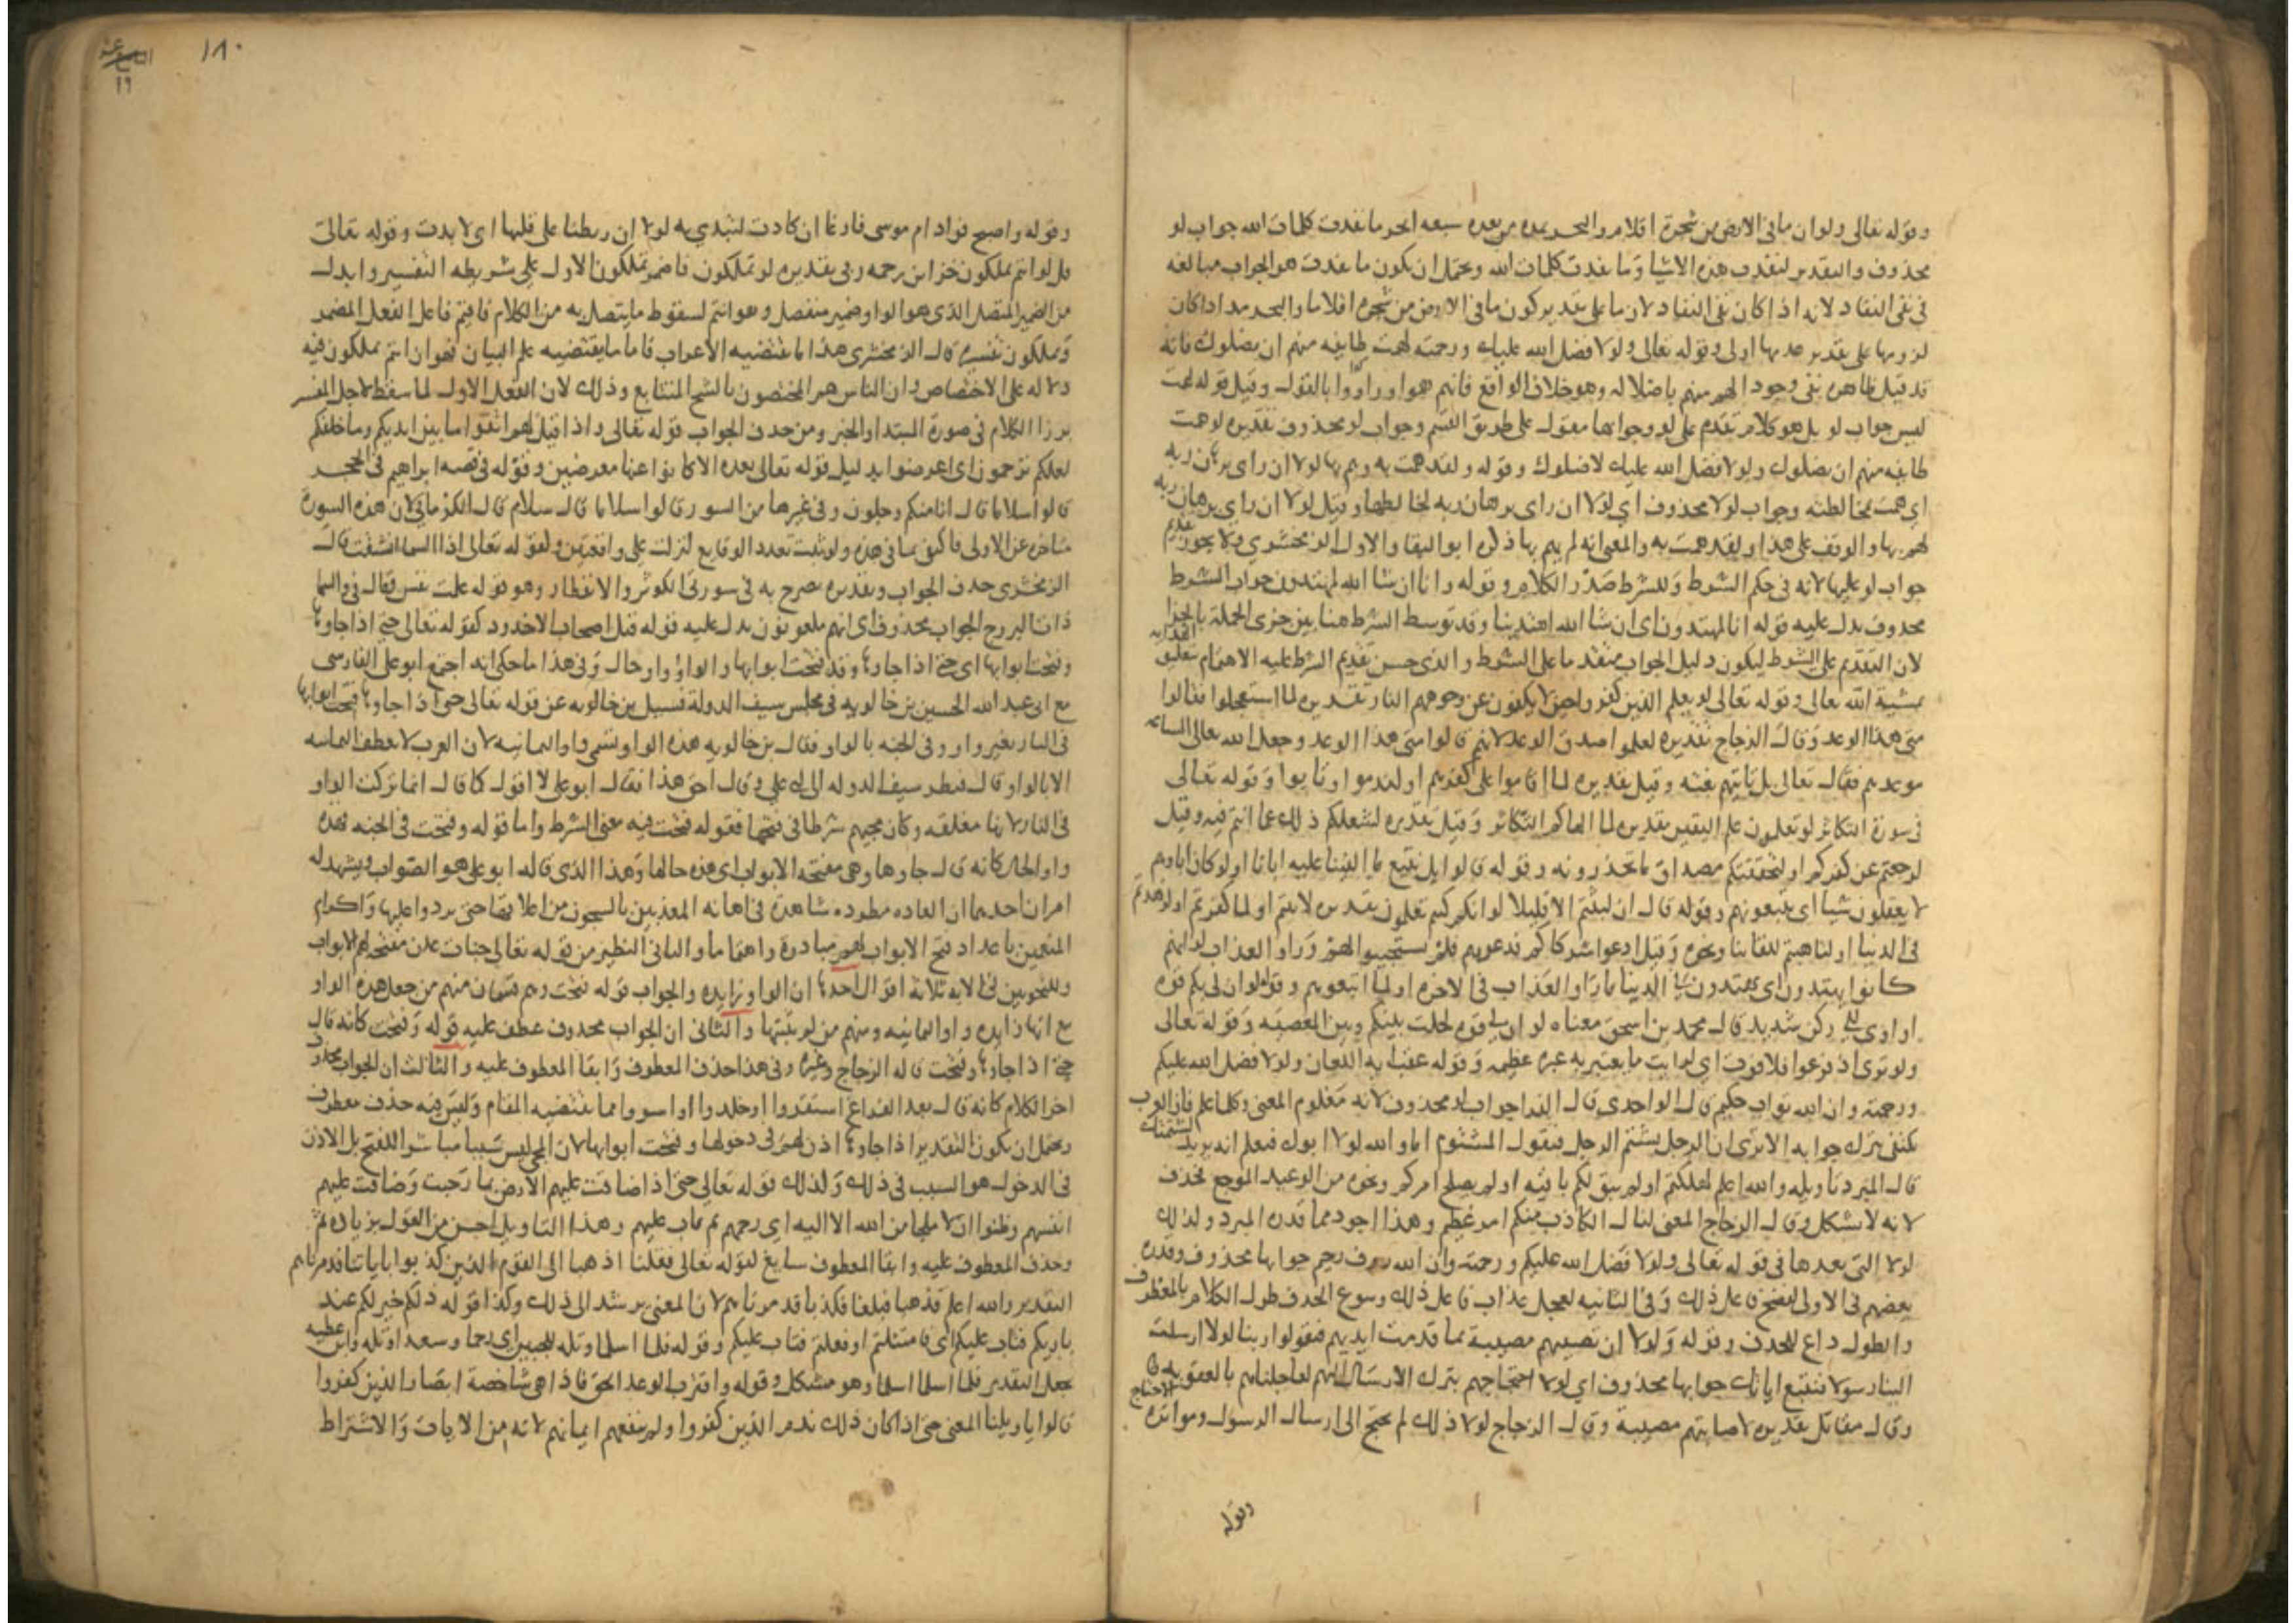 وقوله تعالى ولو ان ما في الارض من شجرة اقلام والبحر يمده من بعده سبعة ابحر ما نفدت كلمات الله جواب لو
محذوف والتقدير لنفدت هذه الاشيا وما نفدت كلمات الله ويحتمل ان يكون ما نفدت هو الجواب مبالغة
في نفي النفاد لانه اذا كان نفي النفاد لازما على تقدير كون ما في الارض من شجرة اقلاما والبحر مدادا كان
لزومها على تقدير عدمها اولى وقوله تعالى ولولا فضل الله عليك ورحمته لهمت طايفة منهم ان يضلوك فانه
قد قيل ظاهره نفي وجود الهم منهم باضلاله وهو خلاف الواقع فانهم هموا وردوا بالقول وقيل قوله لهمت
ليس جواب لو بل هو كلام تقدم على لو وجوابها مقول على طريق القسم وجواب لو محذوف تقديره لهمت
طايفة منهم ان يضلوك ولولا فضل الله عليك لاضلوك وقوله ولقد همت به وهم بها لولا ان راى برهان ربه
اي همت بمخالطته وجواب لولا محذوف اي لولا ان راى برهان ربه لخالطها وقيل لولا ان راى برهان ربه
لهم بها والوقف على هذا ولقد همت به والمعنى انه لم يهم بها ذكره ابو البقا والاول للزمخشري ولا يجوز تقديم
جواب لو عليها لانه في حكم الشرط وللشرط صدر الكلام وقوله وانا ان شا الله لمهتدون جواب الشرط
محذوف يدل عليه قوله انا لمهتدون اي ان شا الله اهتدينا وقد توسط الشرط هنا بين جزي الجملة بالجزا
لان التقديم على الشرط ليكون دليل الجواب متقدما على الشرط والذي حسن تقديم الشرط عليه الاهتمام بتعليق الهداية
بمشية الله تعالى وقوله تعالى لو يعلم الذين كفروا حين لا يكفون عن وجوههم النار تقديره لما استعجلوا فقالوا
متى هذا الوعد وقال الزجاج تقديره لعلموا صدق الوعد لانهم قالوا متى هذا الوعد وجعل الله تعالى الساعة
موعدهم فقال تعالى بل تاتيهم بغتة وقيل تقديره لما اقاموا على كفرهم او لندموا او تابوا وقوله تعالى
في سورة التكاثر لو تعلمون علم اليقين تقديره لما الهاكم التكاثر وقيل تقديره لشغلكم ذلك عما انتم فيه وقيل
لرجعتم عن كفركم او لتحققتم مصداق ما تحذرونه وقوله قالوا بل نتبع ما الفينا عليه اباءنا اولو كان اباوهم
لا يعقلون شيا اي يتبعونهم وقوله قال ان لبثتم الا قليلا لو انكم كنتم تعلمون تقديره لامنتم او لما كفرتم او لزهدتم
في الدنيا او لتاهبتم للقاينا ونحوه وقيل ادعوا شركاكم فدعوهم فلم يستجيبوا لهم وراوا العذاب لو انهم
كانوا يهتدون اي يهتدون في الدنيا ما راوا العذاب في الاخرة او لما اتبعوهم وقوله لو ان لي بكم قوة
او اوي الى ركن شديد قال محمد بن اسحق معناه لو ان لي قوة لحلت بينكم وبين المعصية وقوله تعالى
ولو ترى اذ فزعوا فلا فوت اي لرايت ما يعتبر به عبرة عظيمة وقوله عقب اية اللعان ولولا فضل الله عليكم
ورحمته وان الله تواب حكيم قال الواحدي قال الفرا جواب لو محذوف لانه معلوم المعنى وكلما علم فان العرب
تكتفي بترك جوابه الا ترى ان الرجل يشتم الرجل فيقول المشتوم اما والله لولا ابوك فيعلم انه يريد لشتمتك
قال المبرد تاويله والله اعلم لهلكتم او لم يبق لكم باقية او لم يصلح امركم ونحوه من الوعيد الموجع فحذف
لانه لا يشكل وقال الزجاج المعنى لنال الكاذب منكم امر عظيم وهذا اجود مما قدره المبرد وكذلك
لولا التي بعدها في قوله تعالى ولولا فضل الله عليكم ورحمته وان الله روف رحيم جوابها محذوف وقدره
بعضهم في الاولى لافتضح فاعل ذلك وفي الثانية لعجل عذاب فاعل ذلك وسوغ الحذف طول الكلام بالمعطوف
والطول داع للحذف وقوله ولولا ان تصيبهم مصيبة بما قدمت ايديهم فيقولوا ربنا لولا ارسلت
الينا رسولا فنتبع اياتك جوابها محذوف اي لولا احتجاجهم بترك الارسال اليهم لعاجلناهم بالعقوبة
وقال مقاتل تقديره لاصابتهم مصيبة وقال الزجاج لولا ذلك لم يحتج الى ارسال الرسول ومواترة الاحتجاج
وقوله
١٨٠
١٩
وقوله واصبح فواد ام موسى فارغا ان كادت لتبدي به لولا ان ربطنا على قلبها اي لابدت وقوله تعالى
قل لو انتم تملكون خزاين رحمة ربي تقديره لو تملكون فاضمر تملكون الاول على شريطة التفسير وابدل
من الضمير المتصل الذي هو الواو ضمير منفصل وهو انتم لسقوط ما يتصل به من الكلام فانتم فاعل الفعل المضمر
وتملكون تفسيره قال الزمخشري هذا ما يقتضيه الاعراب فاما ما يقتضيه علم البيان فهو ان انتم تملكون فيه
دلالة على الاختصاص وان الناس هم المختصون بالشح المتتابع وذلك لان الفعل الاول لما سقط لاجل المفسر
برز الكلام في صورة المبتدا والخبر ومن حذف الجواب قوله تعالى واذا قيل لهم اتقوا ما بين ايديكم وما خلفكم
لعلكم ترحمون اي اعرضوا بدليل قوله تعالى بعده الا كانوا عنها معرضين وقوله في قصة ابراهيم في الحجر
قالوا سلاما قال انا منكم وجلون وفي غيرها من السور قالوا سلاما قال سلام قال الكرماني لان هذه السورة
متاخرة عن الاولى فاكتفى بما في هذه ولو ثبت تعدد الوقايع لنزلت على واقعتين وكقوله تعالى اذا السما انشقت قال
الزمخشري حذف الجواب وتقديره مصرح به في سورتي التكوير والانفطار وهو قوله علمت نفس وقال في والسما
ذات البروج الجواب محذوف اي انهم ملعونون يدل عليه قوله قتل اصحاب الاخدود كقوله تعالى حتى اذا جاوها
وفتحت ابوابها اي حتى اذا جاوها وقد فتحت ابوابها والواو واو حال وفي هذا ما حكي انه اجتمع ابو علي الفارسي
مع ابي عبد الله الحسين بن خالويه في مجلس سيف الدولة فسيل بن خالويه عن قوله تعالى حتى اذا جاوها فتحت ابوابها
في النار بغير واو وفي الجنة بالواو فقال بن خالويه هذه الواو تسمى واو الثمانية لان العرب لا تعطف الثمانية
الا بالواو قال فنظر سيف الدولة الى ابي علي وقال احق هذا فقال ابو علي لا اقول كما قال انما تركت الواو
في النار لانها مغلقة وكان مجيهم شرطا في فتحها فقوله فتحت فيه معنى الشرط واما قوله وفتحت في الجنة فهذه
واو الحال كانه قال جاوها وهي مفتحة الابواب او هذه حالها وهذا الذي قاله ابو علي هو الصواب ويشهد له
امران احدهما ان العادة مطردة شاهدة في اهانة المعذبين بالسجون من اغلاقها حتى يردوا عليها واكرام
المنعمين باعداد فتح الابواب لهم مبادرة واهتماما والثاني النظير من قوله تعالى جنات عدن مفتحة لهم الابواب
وللنحويين في الاية ثلاثة اقوال احدها ان الواو زايدة والجواب قوله فتحت وهم قسمان منهم من جعل هذه الواو
مع انها زايدة واو الثمانية ومنهم من لم يثبتها والثاني ان الجواب محذوف عطف عليه قوله وفتحت كانه قال
حتى اذا جاوها وفتحت قاله الزجاج وغيره وفي هذا حذف المعطوف وابقا المعطوف عليه والثالث ان الجواب محذوف
اخر الكلام كانه قال بعد الفراغ استقروا او خلدوا او استووا مما يقتضيه المقام وليس فيه حذف معطوف
ويحتمل ان يكون التقدير اذا جاوها اذن لهم في دخولها وفتحت ابوابها لان المجي ليس سببا مباشرا للفتح بل الاذن
في الدخول هو السبب في ذلك وكذلك قوله تعالى حتى اذا ضاقت عليهم الارض بما رحبت وضاقت عليهم
انفسهم وظنوا ان لا ملجا من الله الا اليه اي رحمهم ثم تاب عليهم وهذا التاويل احسن من القول بزيادة ثم
وحذف المعطوف عليه وابقا المعطوف سايغ كقوله تعالى فقلنا اذهبا الى القوم الذين كذبوا باياتنا فدمرناهم
التقدير والله اعلم فذهبا فبلغا فكذبا فدمرناهم لان المعنى يرشد الى ذلك وكذا قوله ذلكم خير لكم عند
باريكم فتاب عليكم اي فامتثلتم او فعلتم فتاب عليكم وقوله فلما اسلما وتله للجبين اي رحما وسعدا وتله وابن عطية
يجعل التقدير فلما اسلما اسلما وهو مشكل وقوله واقترب الوعد الحق فاذا هي شاخصة ابصار الذين كفروا
قالوا يا ويلنا المعنى حتى اذا كان ذلك ندم الذين كفروا ولم ينفعهم ايمانهم لانه من الايات والاشتراط